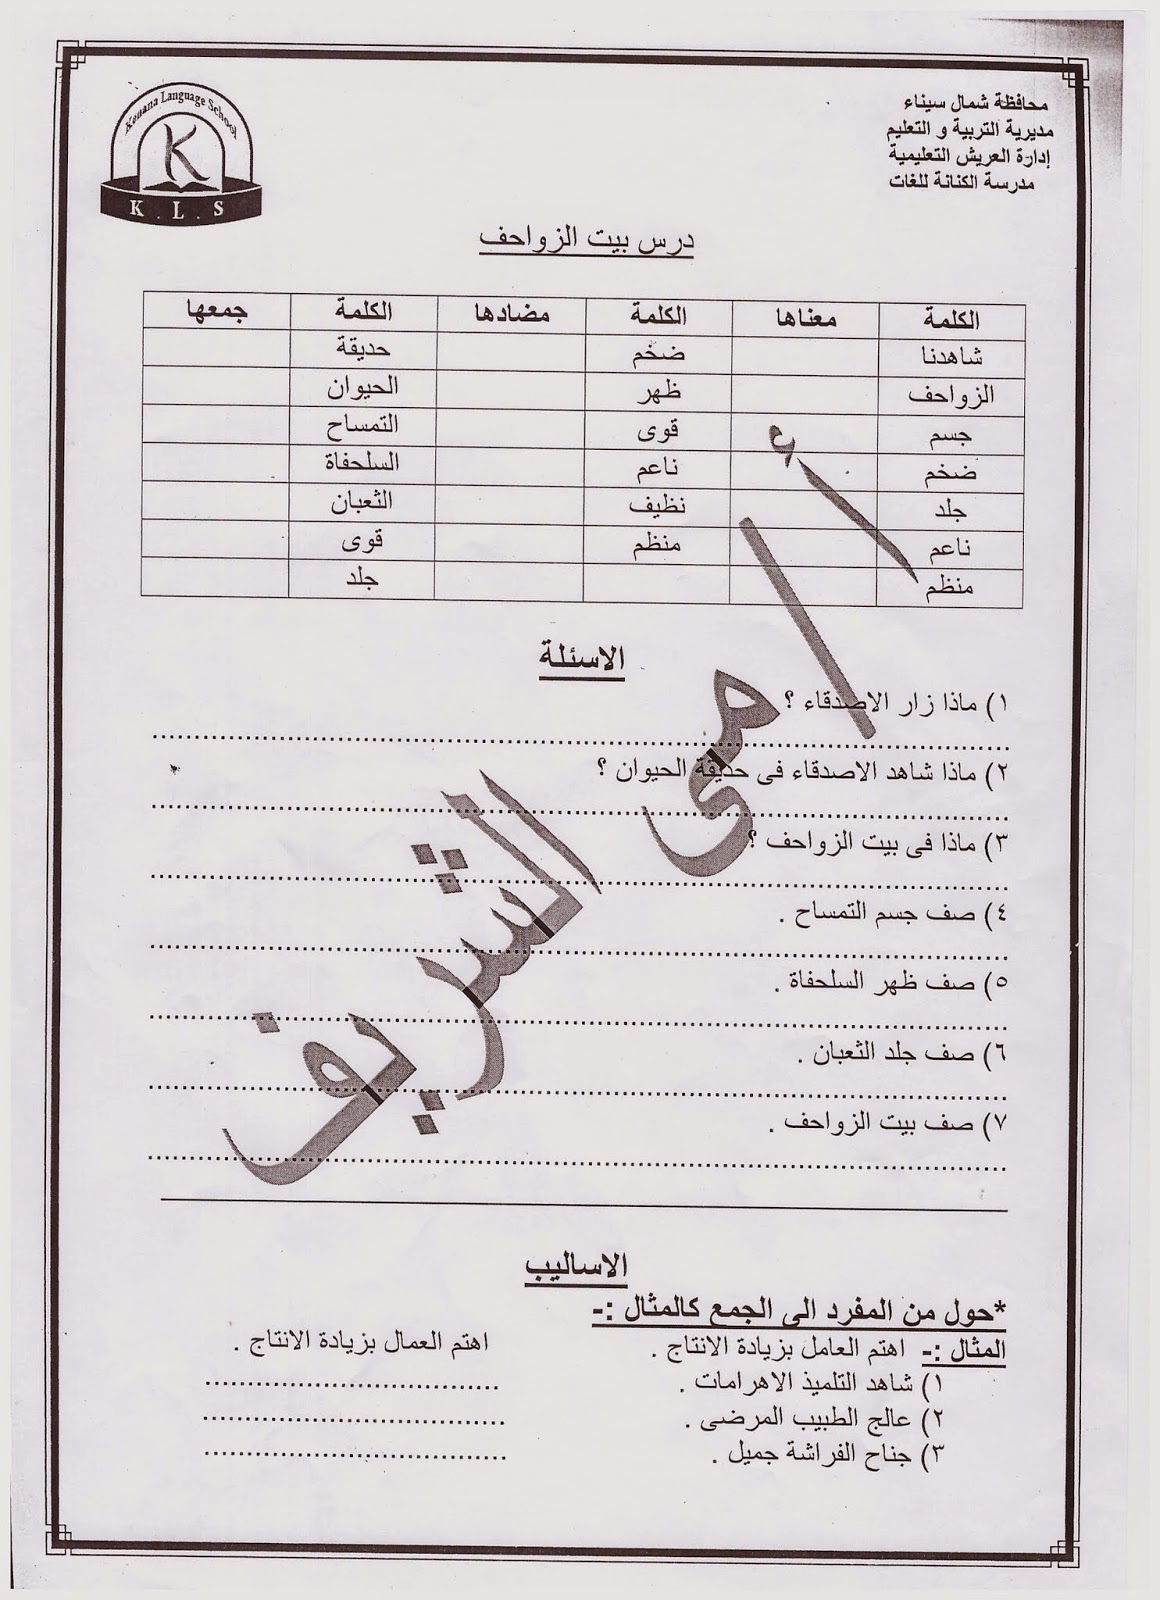 محافظة شمال سيناء
مديرية التربية و التعليم
إدارة العريش التعليمية
مدرسة الكنانة للغات
Kenana Language School
K
K . L . S
درس بيت الزواحف
الكلمة معناها الكلمة مضادها الكلمة جمعها
شاهدنا ضخم حديقة
الزواحف ظهر الحيوان
جسم قوى التمساح
ضخم ناعم السلحفاة
جلد نظيف الثعبان
ناعم منظم قوى
منظم جلد
الاسئلة
١) ماذا زار الاصدقاء ؟
٢) ماذا شاهد الاصدقاء فى حديقة الحيوان ؟
٣) ماذا فى بيت الزواحف ؟
٤) صف جسم التمساح .
٥) صف ظهر السلحفاة .
٦) صف جلد الثعبان .
٧) صف بيت الزواحف .
أ / مى الشريف
الاساليب
*حول من المفرد الى الجمع كالمثال :-
المثال :- اهتم العامل بزيادة الانتاج . اهتم العمال بزيادة الانتاج .
١) شاهد التلميذ الاهرامات .
٢) عالج الطبيب المرضى .
٣) جناح الفراشة جميل .